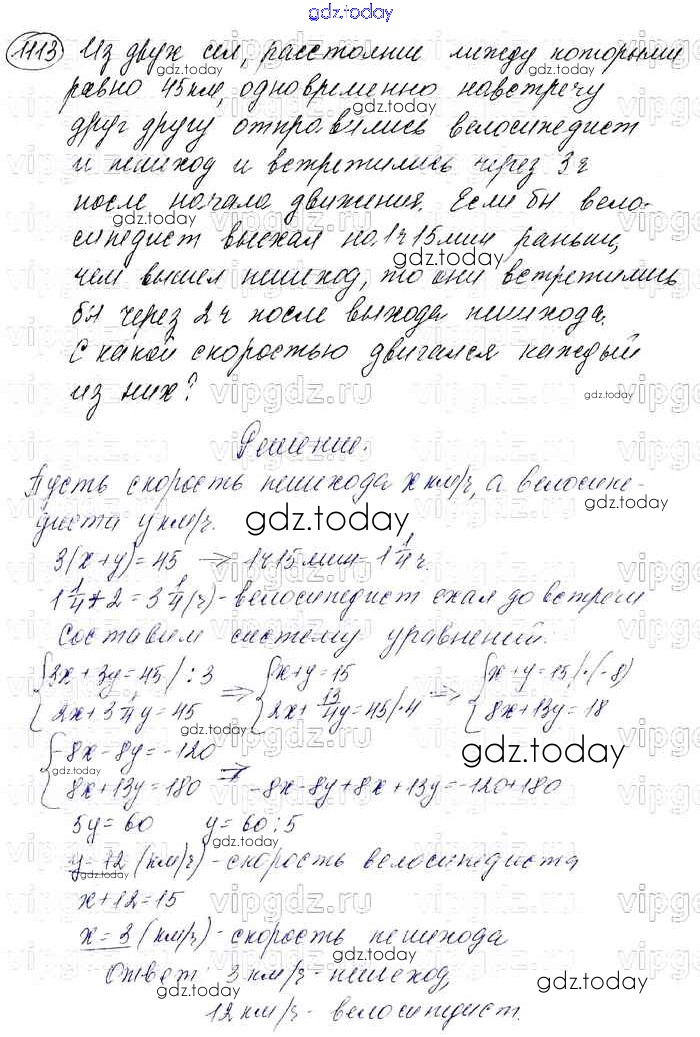 gdz.today
1113 Из двух сел, расстояние между которыми
равно 45 км, одновременно навстречу
друг другу отправились велосипедист
и пешеход и встретились через 3 ч
после начала движения. Если бы вело-
сипедист выехал на 1 ч 15 мин раньше,
чем вышел пешеход, то они встретились
бы через 2 ч после выхода пешехода.
С какой скоростью двигался каждый
из них?
Решение.
Пусть скорость пешехода x км/ч, а велосипе-
диста y км/ч.
3(x+y)=45 → 1ч15мин = 1 1/4 ч.
1 1/4 + 2 = 3 1/4 (ч) - велосипедист ехал до встречи
Составим систему уравнений.
{3x+3y=45 | :3 ⇒ {x+y=15 ⇒ {x+y=15 | ·(-8)
{2x+3 1/4 y=45 {2x+ 13/4 y=45 | ·4 {8x+13y=18
{-8x-8y=-120
{8x+13y=180 ⇒ -8x-8y+8x+13y=-120+180
5y=60 y=60:5
y=12 (км/ч) - скорость велосипедиста
x+12=15
x=3 (км/ч) - скорость пешехода
Ответ: 3 км/ч - пешеход,
12 км/ч - велосипедист.